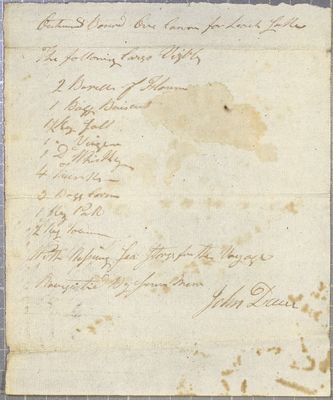 Outward Bound One Canoe for Leech Lake
The following Cargo Viz
2 Barrells of Flour
1 Bagg Biscuit
1 Keg Salt
1 " Vinegar
1 D Whiskey
4
3 Bagg Corn
1 Keg Pork
2 Keg
With Nessary Sea Stores for the Voyage
Navigated By four Men
John